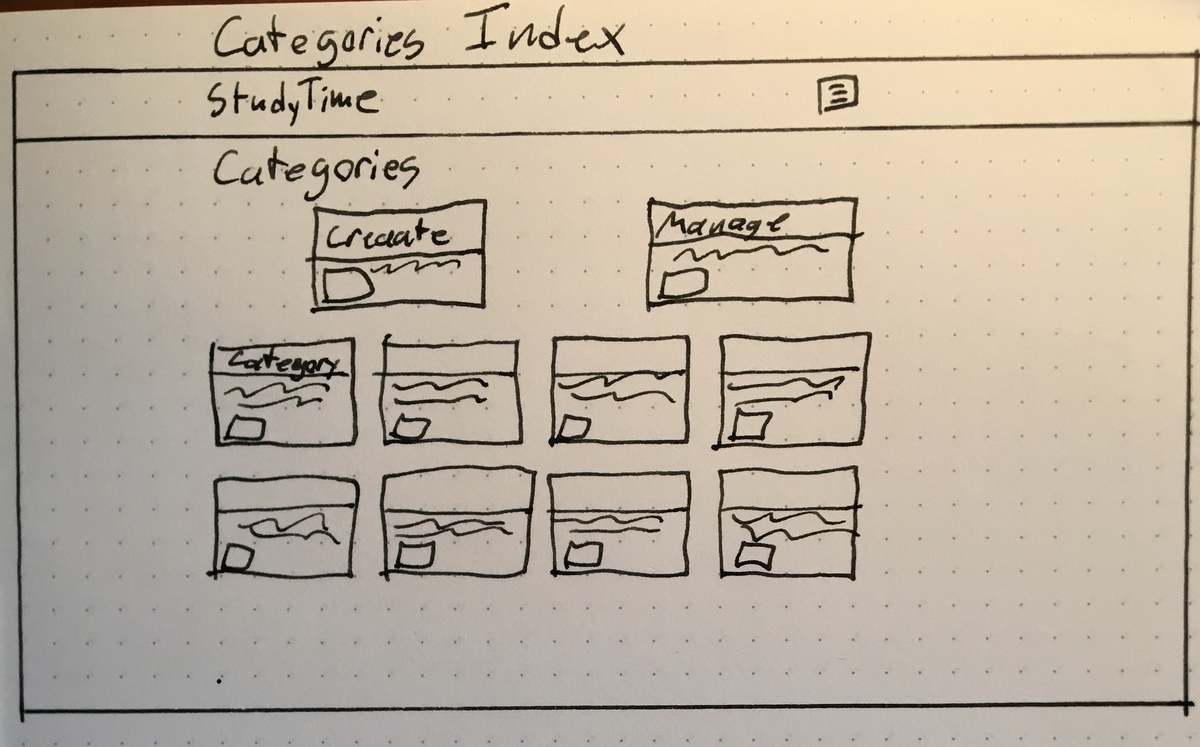 Categories Index
StudyTime
Categories
Creaate
Manage
Category